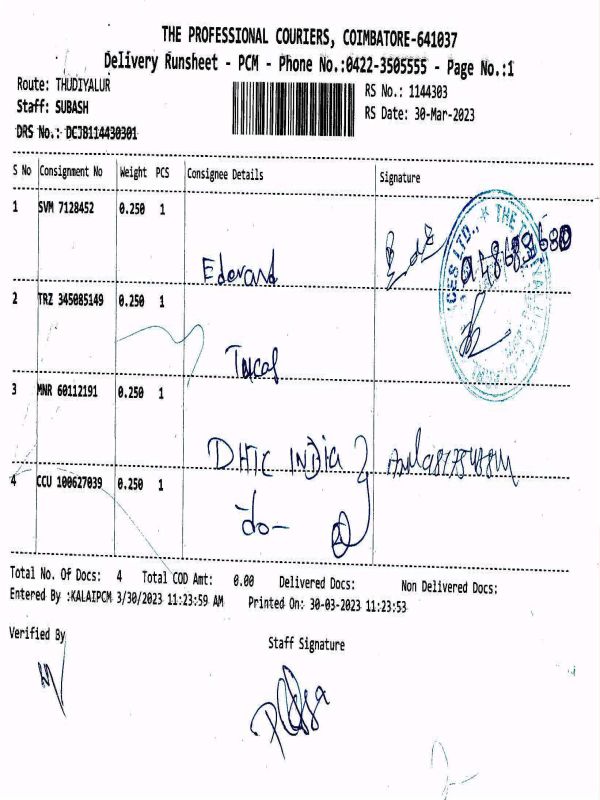 THE PROFESSIONAL COURIERS, COIMBATORE-641037
Delivery Runsheet - PCM - Phone No.:0422-3505555 - Page No.:1
Route: THUDIYALUR
RS No.: 1144303
Staff: SUBASH
RS Date: 30-Mar-2023
DRS No.: DCJB114430301
S No Consignment No Weight PCS Consignee Details Signature
1 SVM 7128452 0.250 1
THE
CES LTD.,
2 TRZ 345085149 0.250 1
3 MNR 60112191 0.250 1
DHTC INDIA
4 CCU 100627039 0.250 1
-do-
Total No. Of Docs: 4 Total COD Amt: 0.00 Delivered Docs: Non Delivered Docs:
Entered By :KALAIPCM 3/30/2023 11:23:59 AM Printed On: 30-03-2023 11:23:53
Verified By
Staff Signature